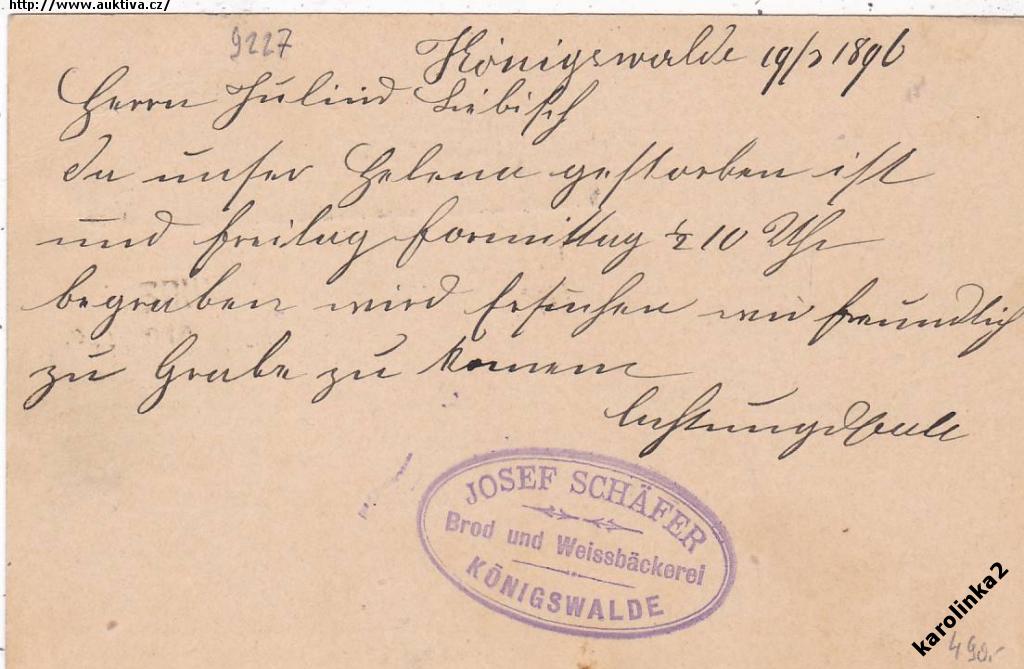 http://www.auktiva.cz/
9227
Königswalde 19/3 1896
Herrn Julius Liebisch
Da unser Helena gestorben ist
und freitag formittag 1/2 10 Uhr
begraben wird Ersuchen wir freundlich
zu Grabe zu komen
Achtungsvoll
JOSEF SCHÄFER
Brod und Weissbäckerei
KÖNIGSWALDE
karolinka2
490.-